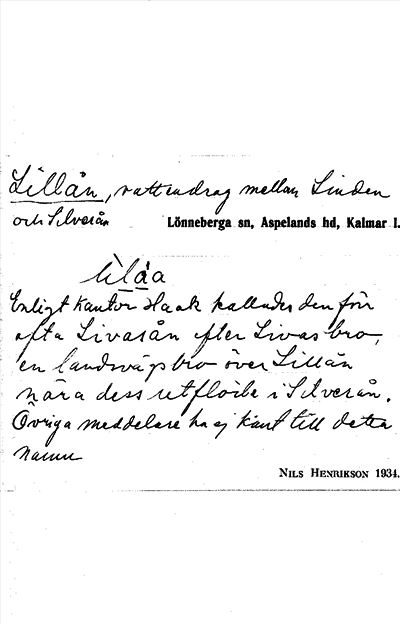 Lillån, vattendrag mellan Linden
och Silverån Lönneberga sn, Aspelands hd, Kalmar l.
lìlå̀a
Enligt kantor Haak kallades den förr
ofta Livasån efter Livasbro,
en landsvägsbro över Lillån
nära dess utflöde i Silverån.
Övriga meddelare ha ej känt till detta
namn
NILS HENRIKSON 1934.